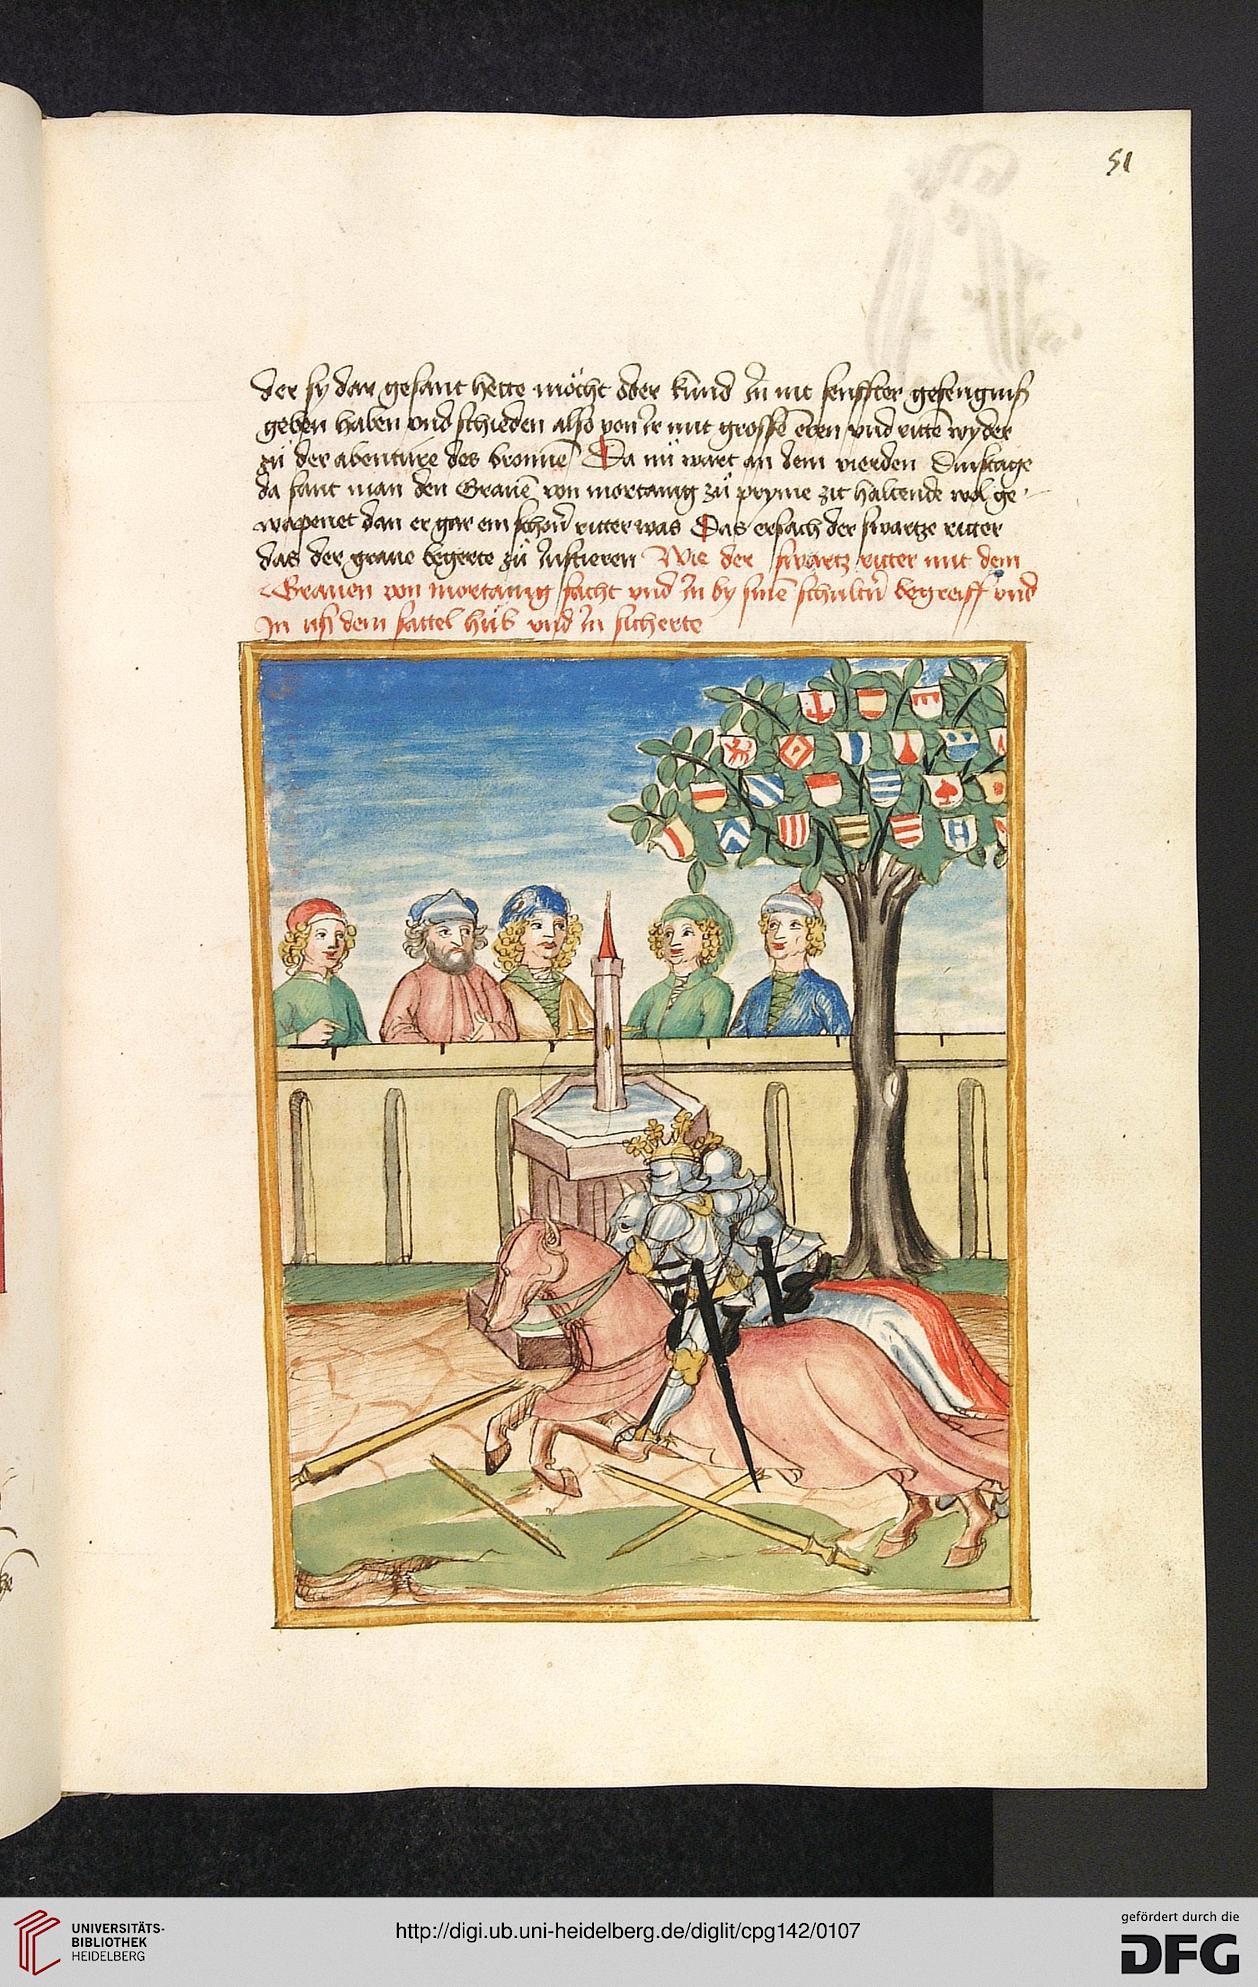 51
der sy dar gesant hette möcht oder kund In nit senffter gefengniß
geben haben vnd schieden also von ir mit grossē eren vnd rittē wyder
zü der abentüre des bronnē Da nü wart an dem vierden Dinstage
da fant man den Grauē von mortanig zü pryme zit haltende wol ge-
wapenet dan er gar ein schoñ ritter was Das ersach der swartze ritter
das der graue begerte zü Iustieren Wie der swartz ritter mit dem
Grauen von mortanig facht vnd In by sinē schultn̄ begreiff vnd
In uß dem sattel hüb vnd In sicherte
UNIVERSITÄTS-
BIBLIOTHEK
HEIDELBERG
http://digi.ub.uni-heidelberg.de/diglit/cpg142/0107
gefördert durch die
DFG